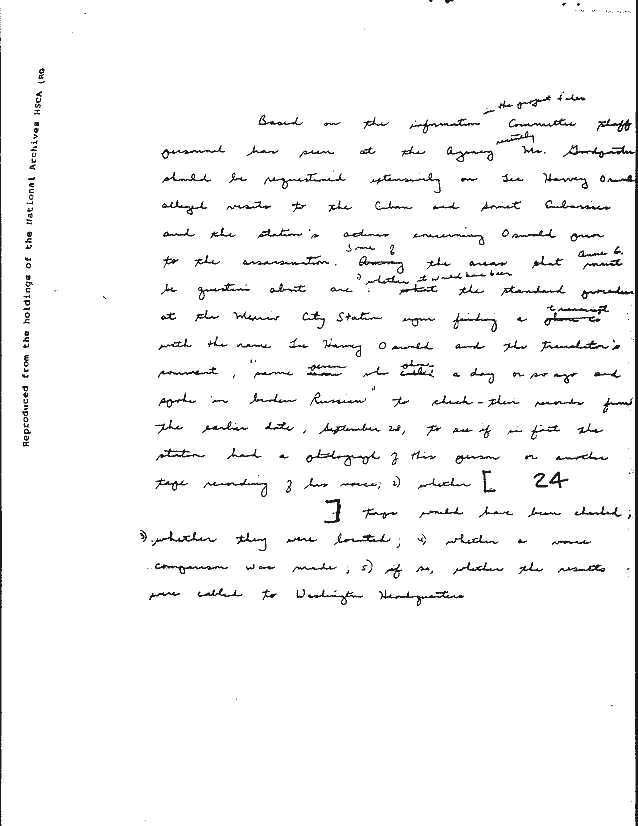 Reproduced from the holdings of the National Archives HSCA (RG
in the project files
Based on the information Committee staff
recently
personnel has seen at the Agency Mr. Goodpasture
should be requestioned extensively on Lee Harvey Oswald
alleged visits to the Cuban and Soviet Embassies
and the station's actions concerning Oswald prior
Some of
to the assassination. Among the areas that must
1) whether it would have been
be question about are: what the standard procedure
transcript
at the Mexico City Station upon finding a
with the name Lee Harvey Oswald and the translator's
comment, "same person who called a day or so ago and
spoke in broken Russian" to check their records from
the earlier date, September 28, to see if in fact the
station had a photograph of this person or another
tape recording of his voice; 2) whether [ 24
] tape would have been checked;
3) whether they were located; 4) whether a voice
comparison was made; 5) if so, whether the results
were cabled to Washington Headquarters